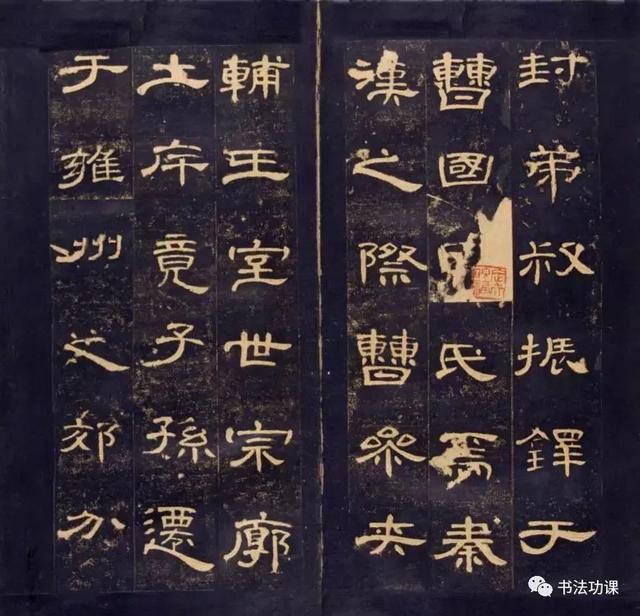 封弟叔振鐸于
曹國因氏焉秦
漢之際曹參夾
輔王室世宗廓
土斥竟子孫遷
于雍州之郊分
书法功课